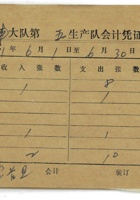 大队第 五 生产队会计凭证
1年 6月 1日至 6月 30日
收入张数 支出张数
8
1
1
1
2 10
会计 装订